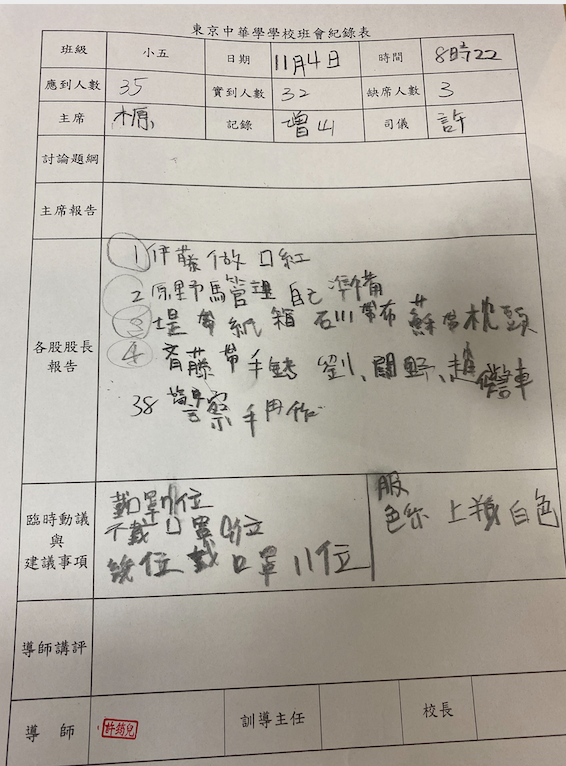 東京中華學學校班會紀錄表
班級 小五 日期 11月4日 時間 8時22
應到人數 35 實到人數 32 缺席人數 3
主席 榞 記錄 增山 司儀 許
討論題綱
主席報告
各股股長報告
1 伊藤 做 口紅
2 原野馬管理 自己 準備
3 堤 帶 紙 箱 石川 帶布 蘇 帶枕頭
4 斉藤 帶 手銬 劉、關野、趙 警車
38 警察 手用作
臨時動議與建議事項
不戴口罩 位
位 戴 口罩 11位
服
色 上 白色
導師講評
導師 許筠兒 訓導主任 校長